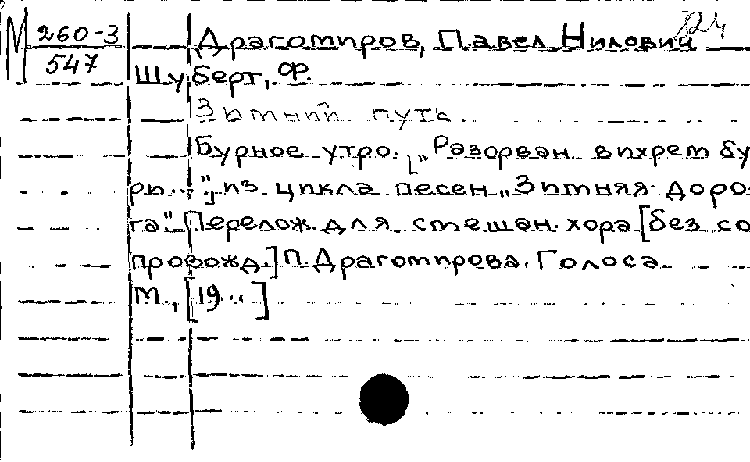 М 260-3
547
Драгомиров, Павел Нилович
Шуберт, Ф.
Зимний путь
Бурное утро. [„Разорван вихрем бу-
ри...“] из цикла песен „Зимняя доро-
га“. Перелож. для смешан. хора [без со-
провожд.] П. Драгомирова. Голоса.
М., [19..]